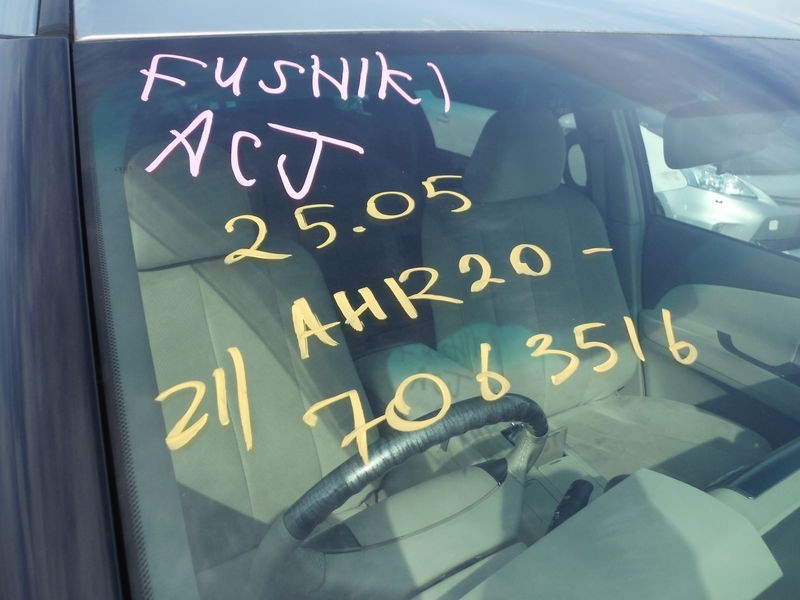 FUSHIKI
ACJ
25.05
AHR20-
211 7063516